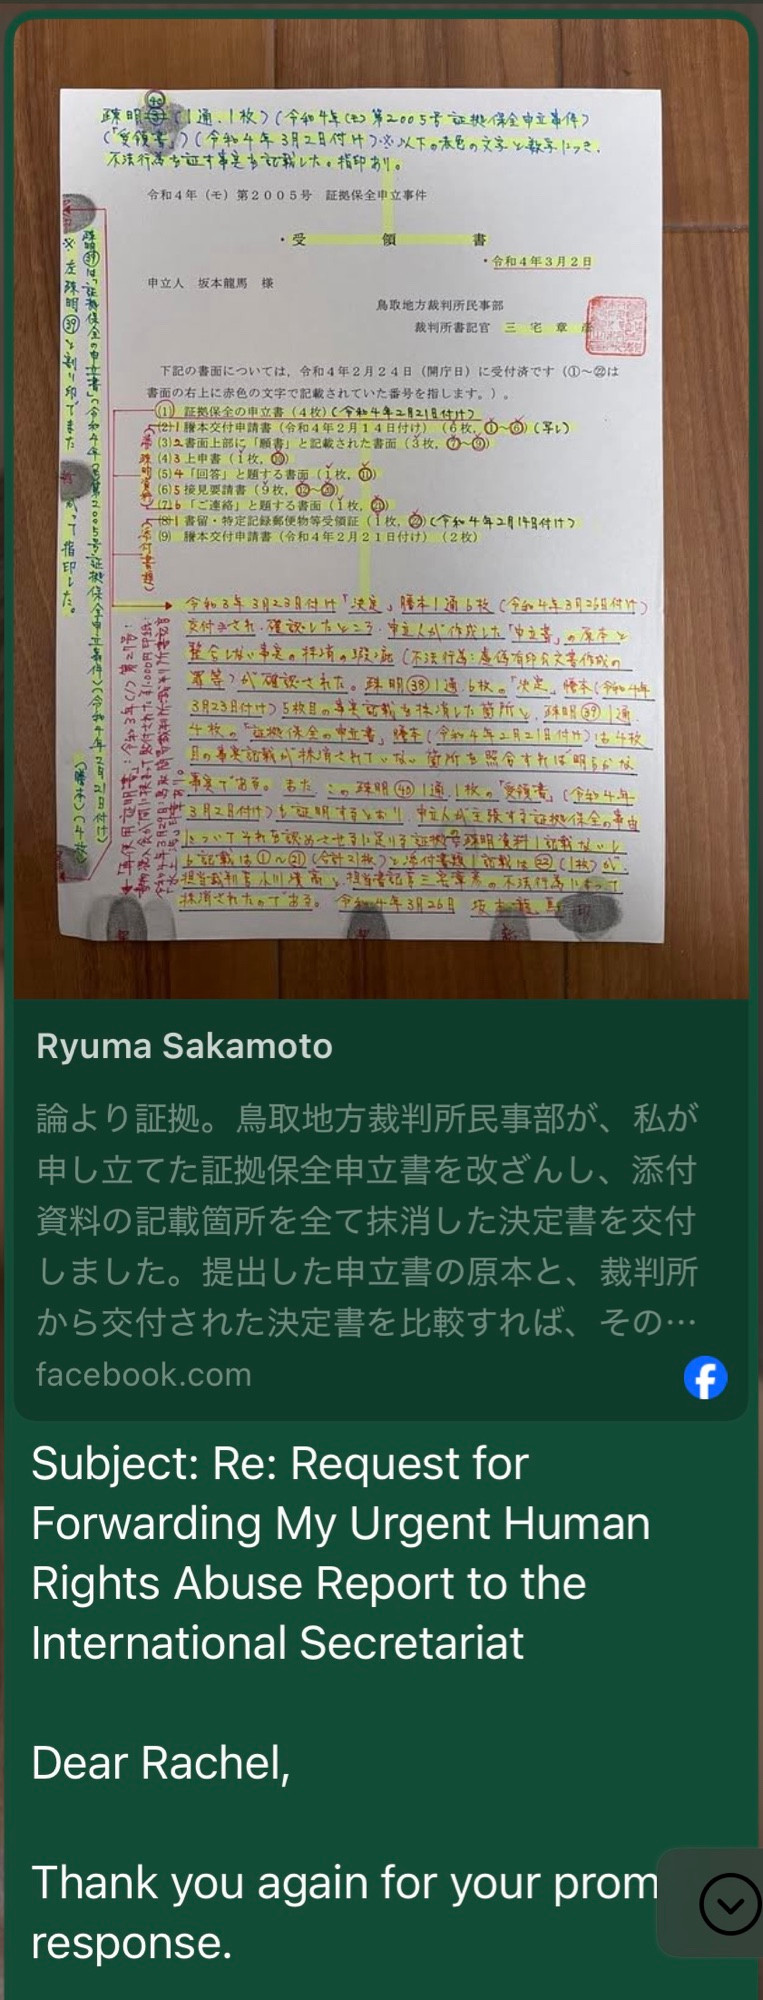 疎明㊵(1通、1枚)(令和4年(モ)第2005号証拠保全申立事件)
(「受領書」)(令和4年3月2日付け)※以下の赤色の文字と数字につき、
不法行為を証す事実を記載した。指印あり。
令和4年(モ)第2005号 証拠保全申立事件
・受 領 書
・令和4年3月2日
申立人 坂本龍馬 様
鳥取地方裁判所民事部
裁判所書記官 三 宅 章
下記の書面については,令和4年2月24日(開庁日)に受付済です(①~㉒は
書面の右上に赤色の文字で記載されていた番号を指します。)。
(1) 証拠保全の申立書(4枚)(令和4年2月21日付け)
(2)1 謄本交付申請書(令和4年2月14日付け)(6枚,①~⑥)(写し)
(3)2 書面上部に「願書」と記載された書面(3枚,⑦~⑨)
(4)3 上申書(1枚,⑩)
(5)4 「回答」と題する書面(1枚,⑪)
(6)5 接見要請書(9枚,⑫~⑳)
(7)6 「ご連絡」と題する書面(1枚,㉑)
(8)1 書留・特定記録郵便物等受領証(1枚,㉒)(令和4年2月14日付け)
(9) 謄本交付申請書(令和4年2月21日付け)(2枚)
令和3年3月23日付け「決定」謄本1通6枚(令和4年3月26日付け)
交付され、確認したところ、申立人が作成した「申立書」の原本と
整合しない事実の抹消の瑕疵(不法行為:虚偽有印公文書作成の
罪等)が確認された。疎明㊳1通、6枚の「決定」謄本(令和4年
3月23日付け)5枚目の事実記載を抹消した箇所と、疎明㊴1通、
4枚の「証拠保全の申立書」謄本(令和4年2月21日付け)は4枚
目の事実記載が抹消されていない箇所を照合すれば明らかな
事実である。また、この疎明㊵1通、1枚の「受領書」(令和4年
3月2日付け)を証明するとおり、申立人が主張する証拠保全の事由
についてそれを認めさせるに足りる証拠の疎明資料1記載ないし
6記載は①~㉑(合計21枚)と添付書類1記載は㉒(1枚)が、
担当裁判官 と、担当書記官三宅章 の不法行為によって
抹消されたのである。令和4年3月26日 坂本龍馬
Ryuma Sakamoto
論より証拠。鳥取地方裁判所民事部が、私が
申し立てた証拠保全申立書を改ざんし、添付
資料の記載箇所を全て抹消した決定書を交付
しました。提出した申立書の原本と、裁判所
から交付された決定書を比較すれば、その…
facebook.com
Subject: Re: Request for
Forwarding My Urgent Human
Rights Abuse Report to the
International Secretariat
Dear Rachel,
Thank you again for your prom
response.